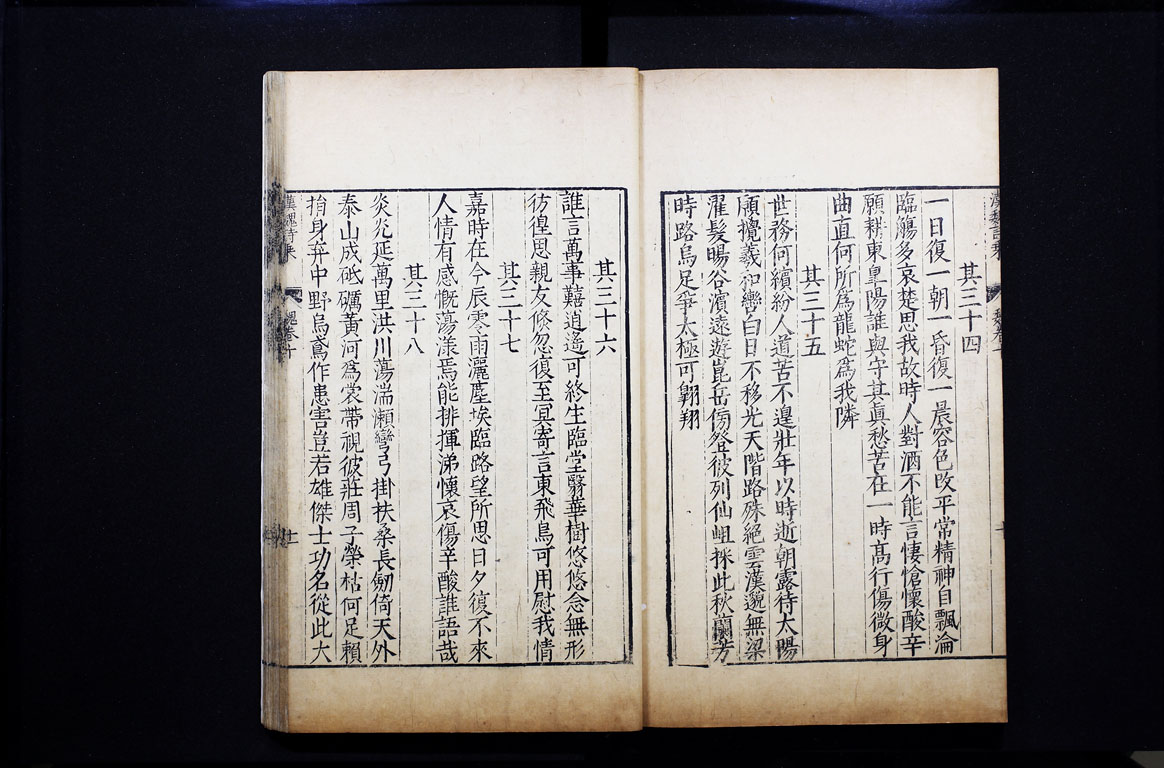 其三十四
一日復一朝一昏復一晨容色改平常精神自飄淪
臨觴多哀楚思我故時人對酒不能言悽愴懷酸辛
願耕東皇陽誰與守其眞愁苦在一時高行傷微身
曲直何所爲龍蛇爲我隣
其三十五
世務何繽紛人道苦不遑壯年以時逝朝露待太陽
願攬羲和轡白日不移光天階路殊絕雲漢邈無梁
濯髮暘谷濱遠遊崑岳傍登彼列仙岨採此秋蘭芳
時路烏足爭太極可翺翔
其三十六
誰言萬事囏逍遙可終生臨堂翳華樹悠悠念無形
彷徨思親友倏忽復至冥寄言東飛鳥可用慰我情
其三十七
嘉時在今辰零雨灑塵埃臨路望所思日夕復不來
人情有感慨蕩漾焉能排揮涕懷哀傷辛酸誰語哉
其三十八
炎炎延萬里洪川蕩湍瀨彎弓掛扶桑長劒倚天外
泰山成砥礪黃河爲裳帶視彼莊周子榮枯何足賴
捐身弃中野烏鳶作患害豈若雄傑士功名從此大